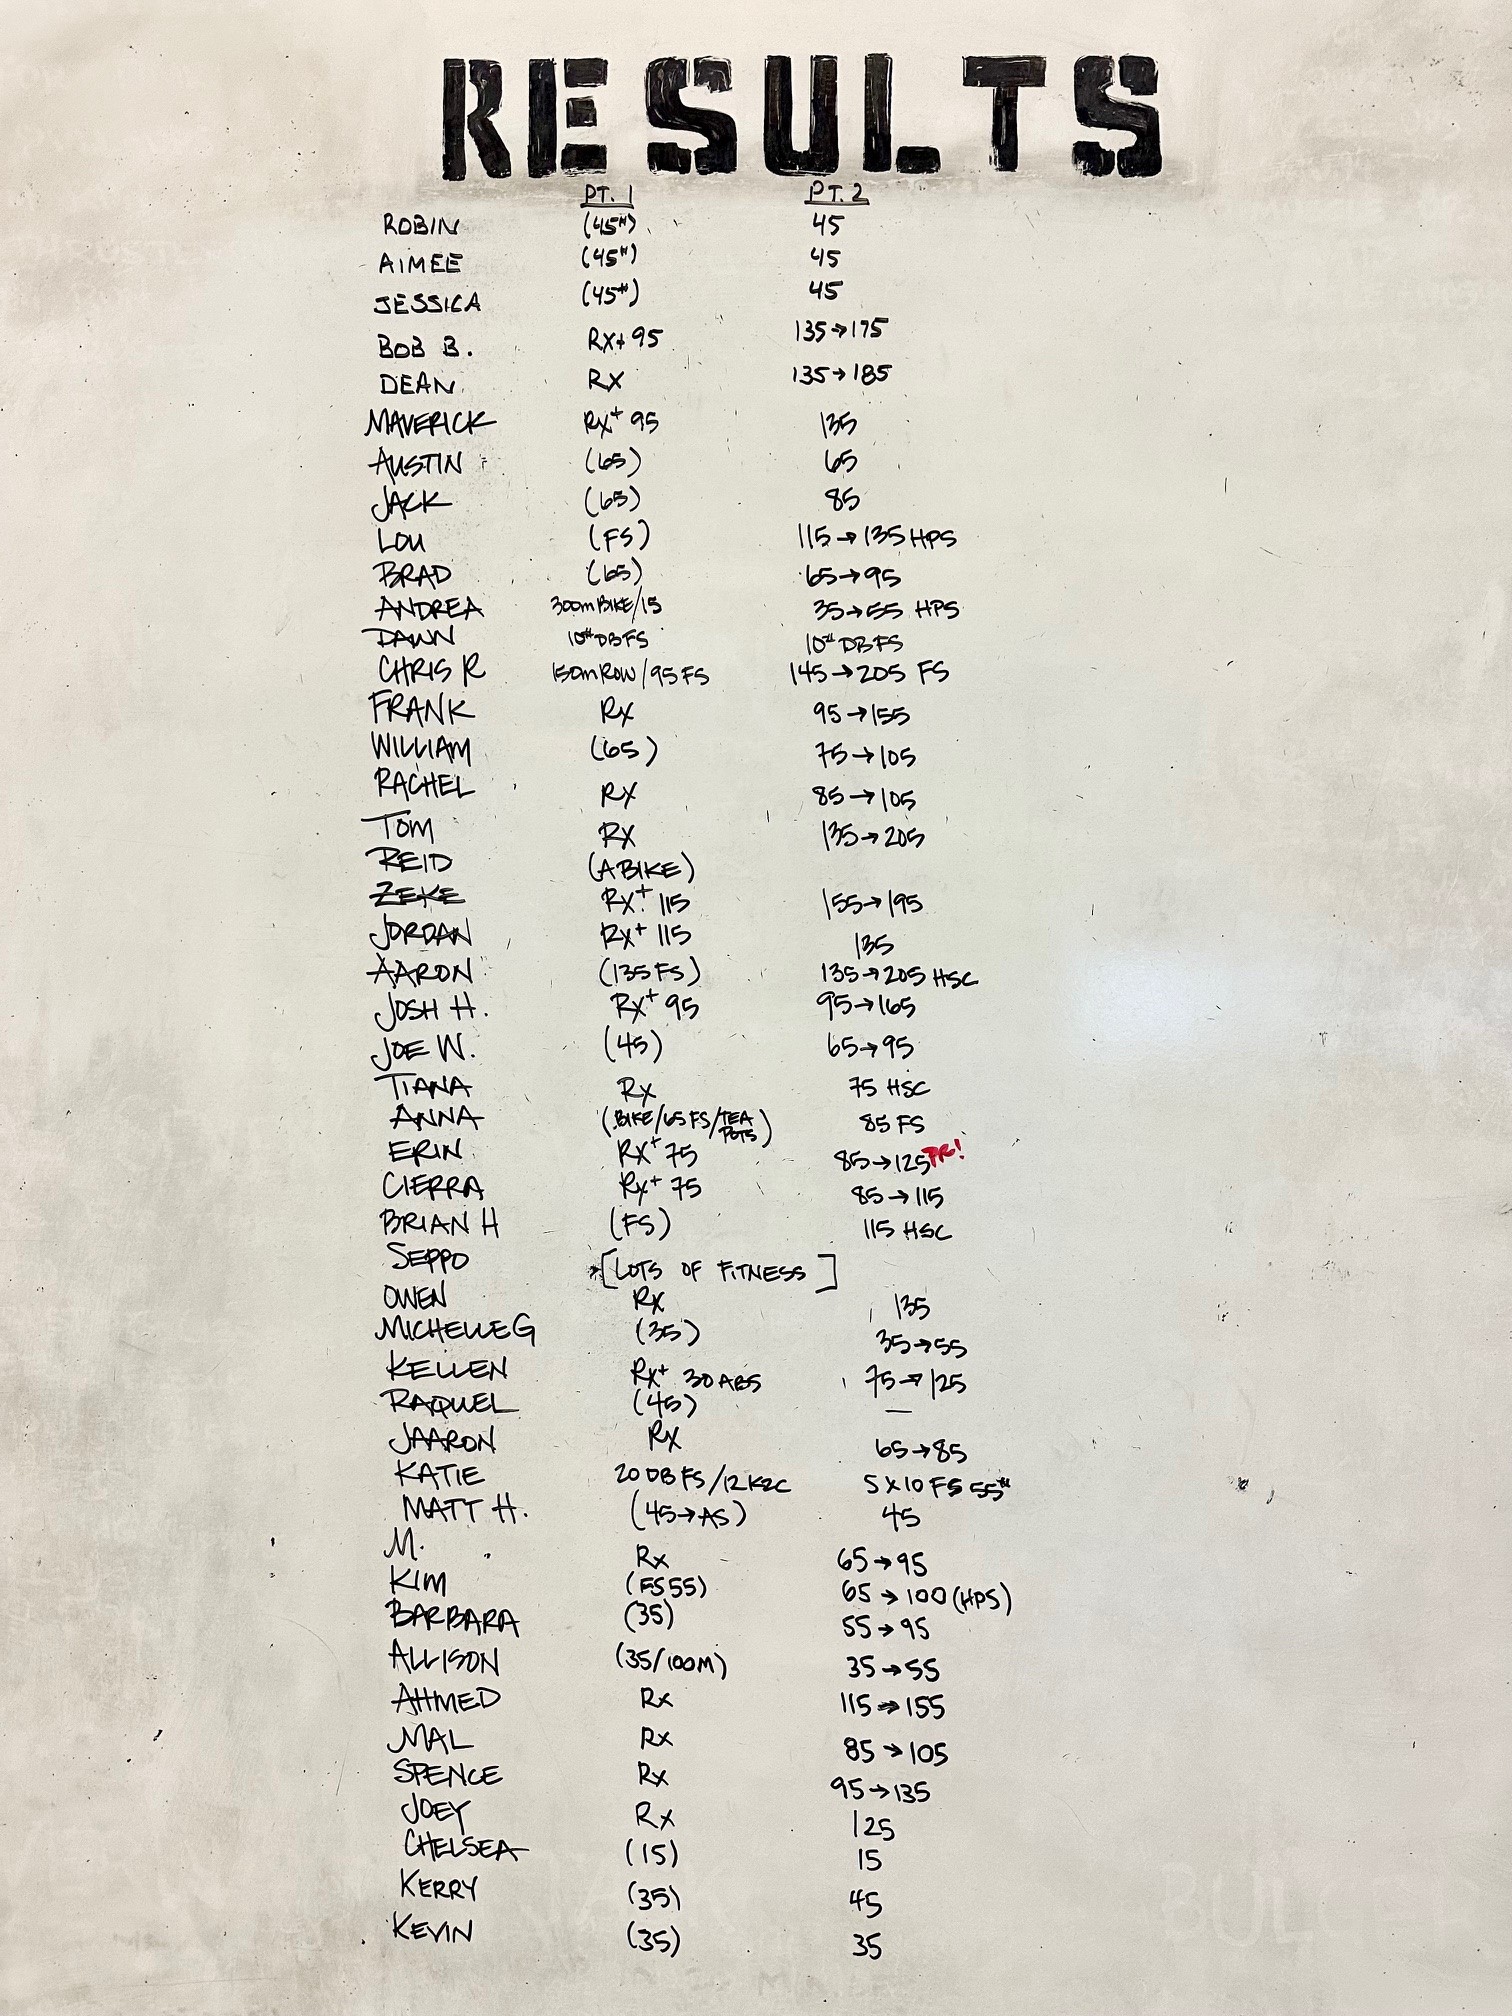 RESULTS
PT. 1 PT. 2
ROBIN (45#) 45
AIMEE (45#) 45
JESSICA (45#) 45
BOB B. RX+ 95 135→175
DEAN RX 135→185
MAVERICK RX+ 95 135
AUSTIN (65) 65
JACK (65) 85
LOU (FS) 115→135 HPS
BRAD (65) 65→95
ANDREA 300m BIKE/15 35→55 HPS
DAWN 10# DBFS 10# DBFS
CHRIS R 150m ROW/95 FS 145→205 FS
FRANK RX 95→155
WILLIAM (65) 75→105
RACHEL RX 85→105
TOM RX 135→205
REID (A BIKE)
ZEKE RX+ 115 155→195
JORDAN RX+ 115 135
AARON (135 FS) 135→205 HSC
JOSH H. RX+ 95 95→165
JOE W. (45) 65→95
TIANA RX 75 HSC
ANNA (BIKE/65 FS/TEA POTS) 85 FS
ERIN RX+ 75 85→125 PR!
CIERRA RX+ 75 85→115
BRIAN H (FS) 115 HSC
SEPPO [LOTS OF FITNESS]
OWEN RX 135
MICHELLE G (35) 35→55
KELLEN RX+ 30 ABS 75→125
RAQUEL (45) —
JAARON RX 65→85
KATIE 20 DB FS/12 K2C 5X10 FS 55#
MATT H. (45→AS) 45
M. RX 65→95
KIM (FS 55) 65→100 (HPS)
BARBARA (35) 55→95
ALLISON (35/100M) 35→55
AHMED RX 115→155
MAL RX 85→105
SPENCE RX 95→135
JOEY RX 125
CHELSEA (15) 15
KERRY (35) 45
KEVIN (35) 35